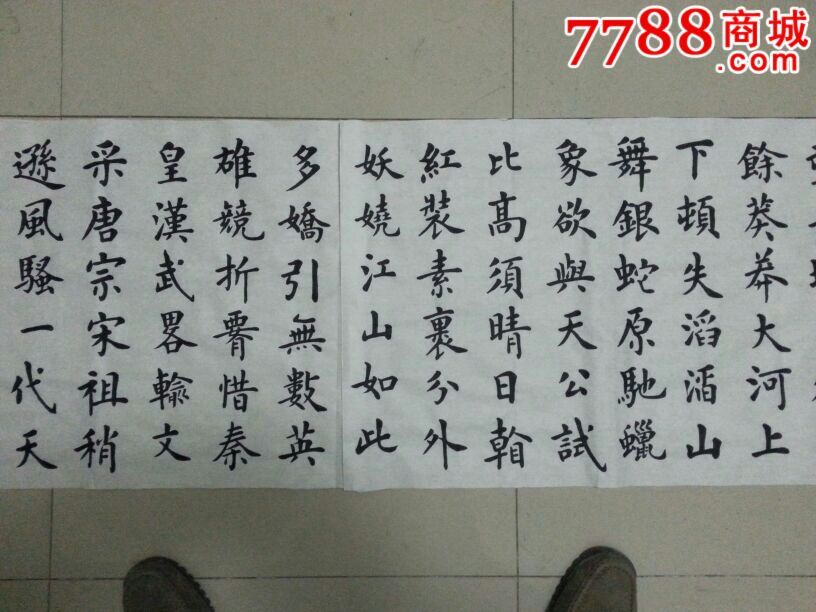 7788商城
.com
餘莽莽大河上
下頓失滔滔山
舞銀蛇原馳蠟
象欲與天公試
比高須晴日看
紅裝素裹分外
妖嬈江山如此
多嬌引無數英
雄競折腰惜秦
皇漢武畧輸文
采唐宗宋祖稍
遜風騷一代天